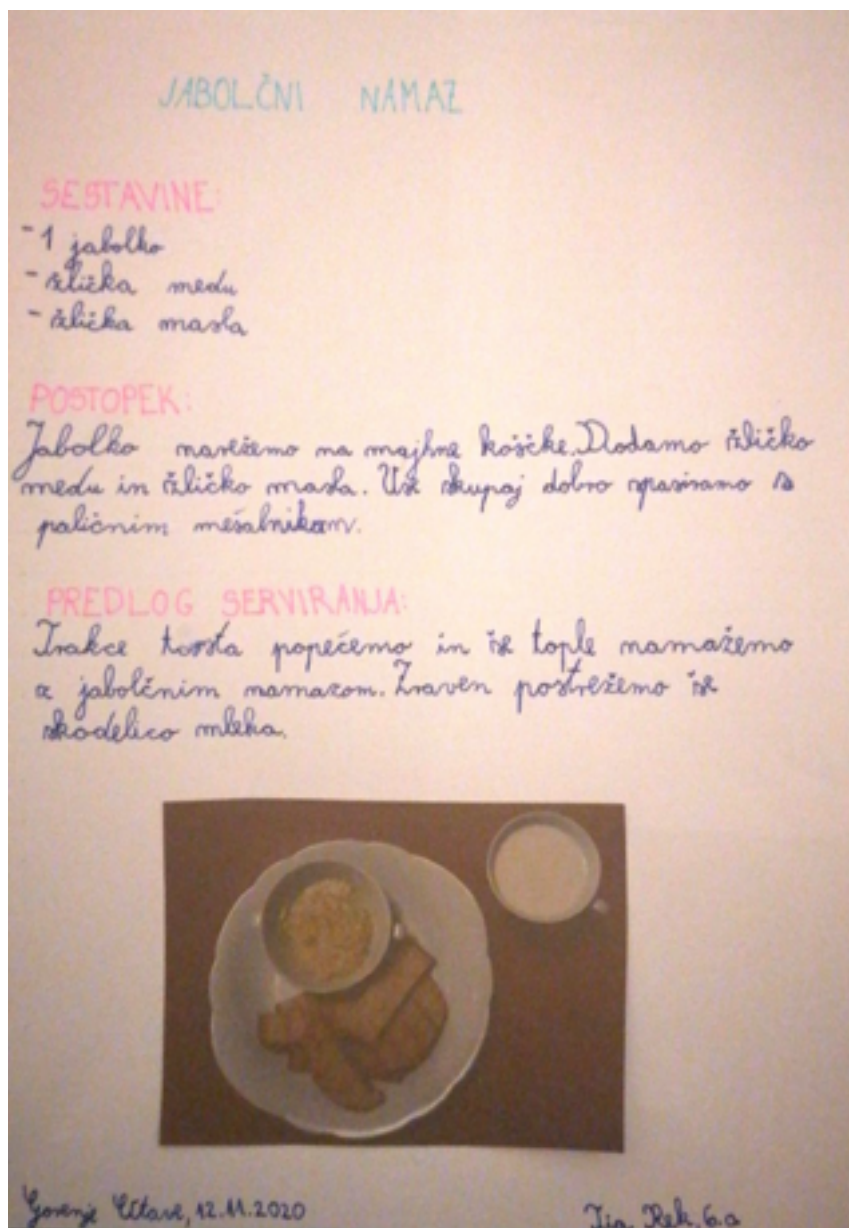 JABOLČNI NAMAZ
SESTAVINE:
- 1 jabolko
- žlička medu
- žlička masla
POSTOPEK:
Jabolko narežemo na majhne koščke. Dodamo žličko
medu in žličko masla. Vse skupaj dobro spasiramo s
paličnim mešalnikom.
PREDLOG SERVIRANJA:
Trakce toasta popečemo in še tople namažemo
z jabolčnim namazom. Zraven postrežemo še
skodelico mleka.
Gorenje 12.11.2020
Tia Rek, 6.a